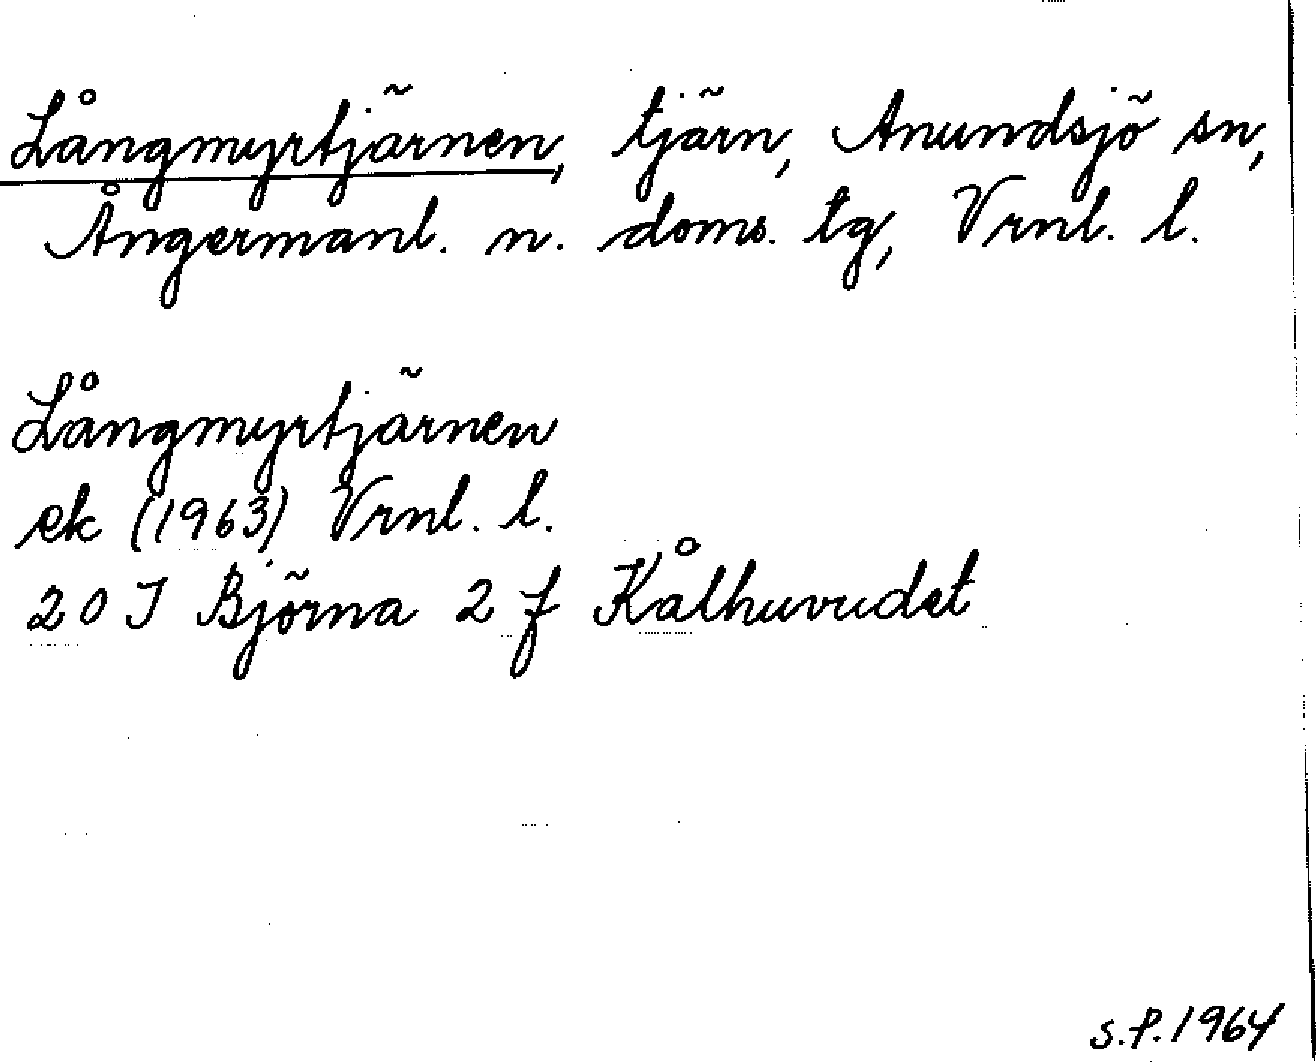 Långmyrtjärnen, tjärn, Anundsjö sn,
Ångermanl. n. doms. tg, Vrnl. l.
Långmyrtjärnen
ek (1963) Vrnl. l.
20 J Björna 2 f Kålhuvudet
S.P. 1964